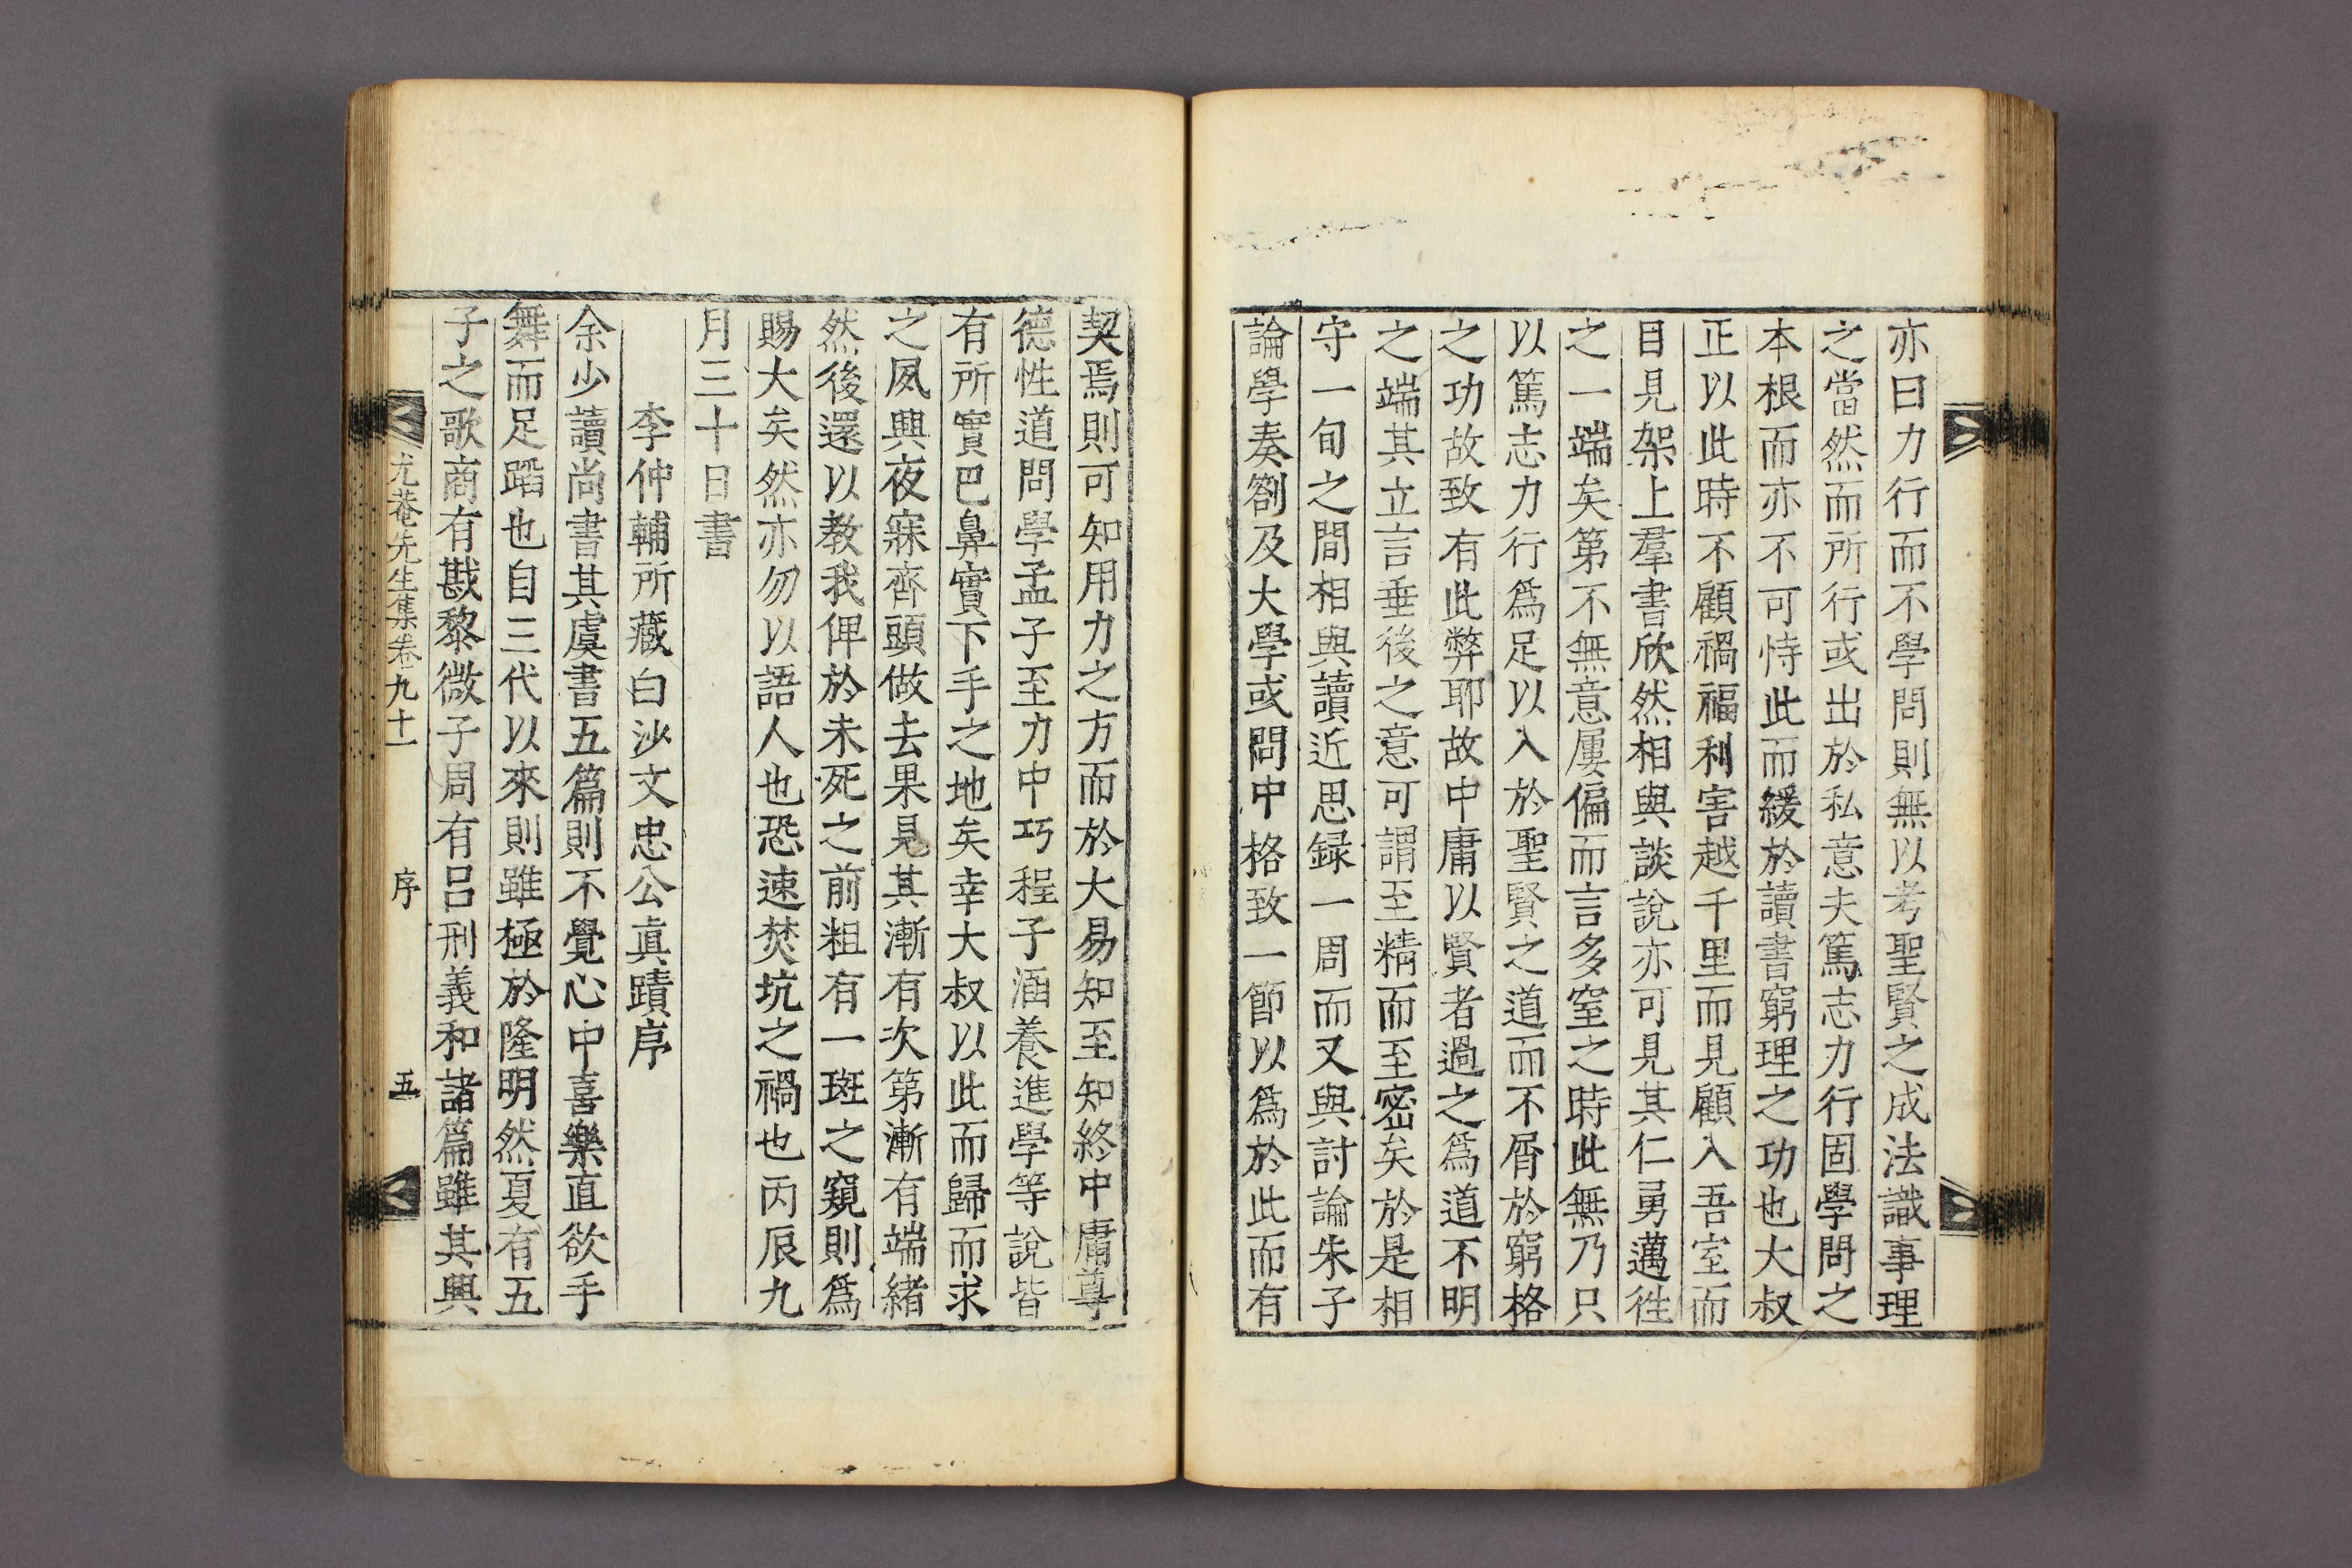 亦曰力行而不學問則無以考聖賢之成法識事理
之當然而所行或出於私意夫篤志力行固學問之
本根而亦不可恃此而緩於讀書窮理之功也大叔
正以此時不顧禍福利害越千里而見顧入吾室而
目見架上羣書欣然相與談說亦可見其仁勇邁徃
之一端矣第不無意屢偏而言多窒之時此無乃只
以篤志力行爲足以入於聖賢之道而不屑於窮格
之功故致有此弊耶故中庸以賢者過之爲道不明
之端其立言垂後之意可謂至精而至密矣於是相
守一旬之間相與讀近思録一周而又與討論朱子
論學奏劄及大學或問中格致一節以爲於此而有
契焉則可知用力之方而於大易知至知終中庸尊
德性道問學孟子至力中巧程子涵養進學等說皆
有所實巴鼻實下手之地矣幸大叔以此而歸而求
之夙興夜寐齊頭做去果見其漸有次第漸有端緒
然後還以教我俾於未死之前粗有一斑之窺則爲
賜大矣然亦勿以語人也恐速焚坑之禍也丙辰九
月三十日書
李仲輔所藏白沙文忠公眞蹟序
余少讀尚書其虞書五篇則不覺心中喜樂直欲手
舞而足蹈也自三代以來則雖極於隆明然夏有五
子之歌商有戡黎微子周有呂刑義和諸篇雖其興
尤菴先生集卷九十一 序 五